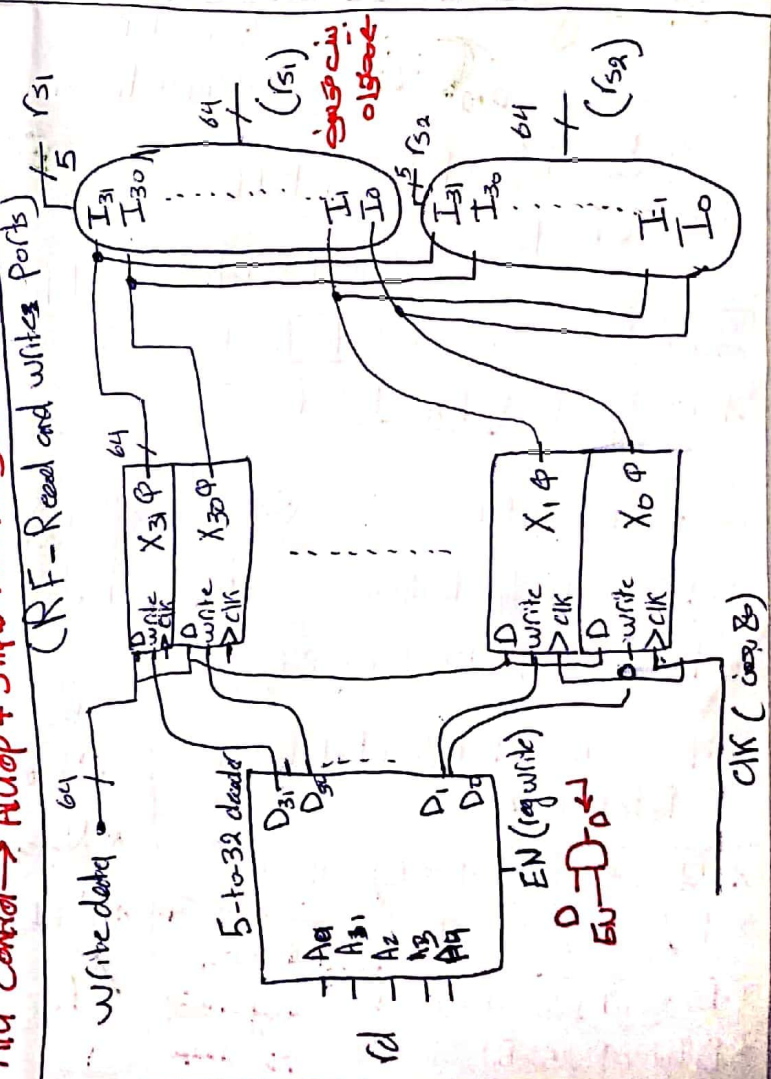 ALU Control → ALUOP +
(RF-Read and writes Ports)
Write data
64
5-to-32 decoder
rd
A0
A1
A2
A3
A4
D31
D30
D1
D0
EN (reg write)
D
EN
D
64
D
write
clk
X31 Q
D
write
X30 Q
clk
D
write
clk
X1 Q
D
write
clk
X0 Q
0
clk
5
rs1
I31
I30
I1
I0
64
(rs1)
5
rs2
I31
I30
I1
I0
64
(rs2)